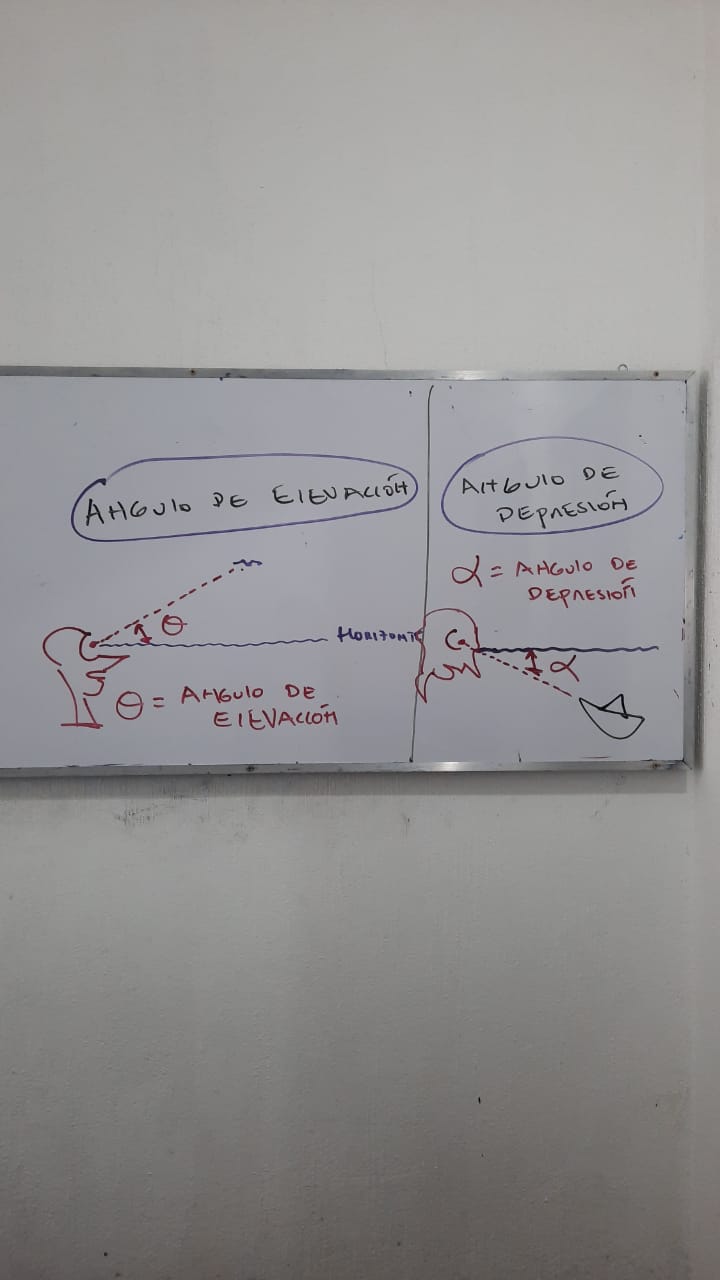 ANGULO DE ELEVACIÓN
θ
HORIZONTE
θ = ANGULO DE
ELEVACIÓN
ANGULO DE
DEPRESIÓN
α = ANGULO DE
DEPRESIÓN
α